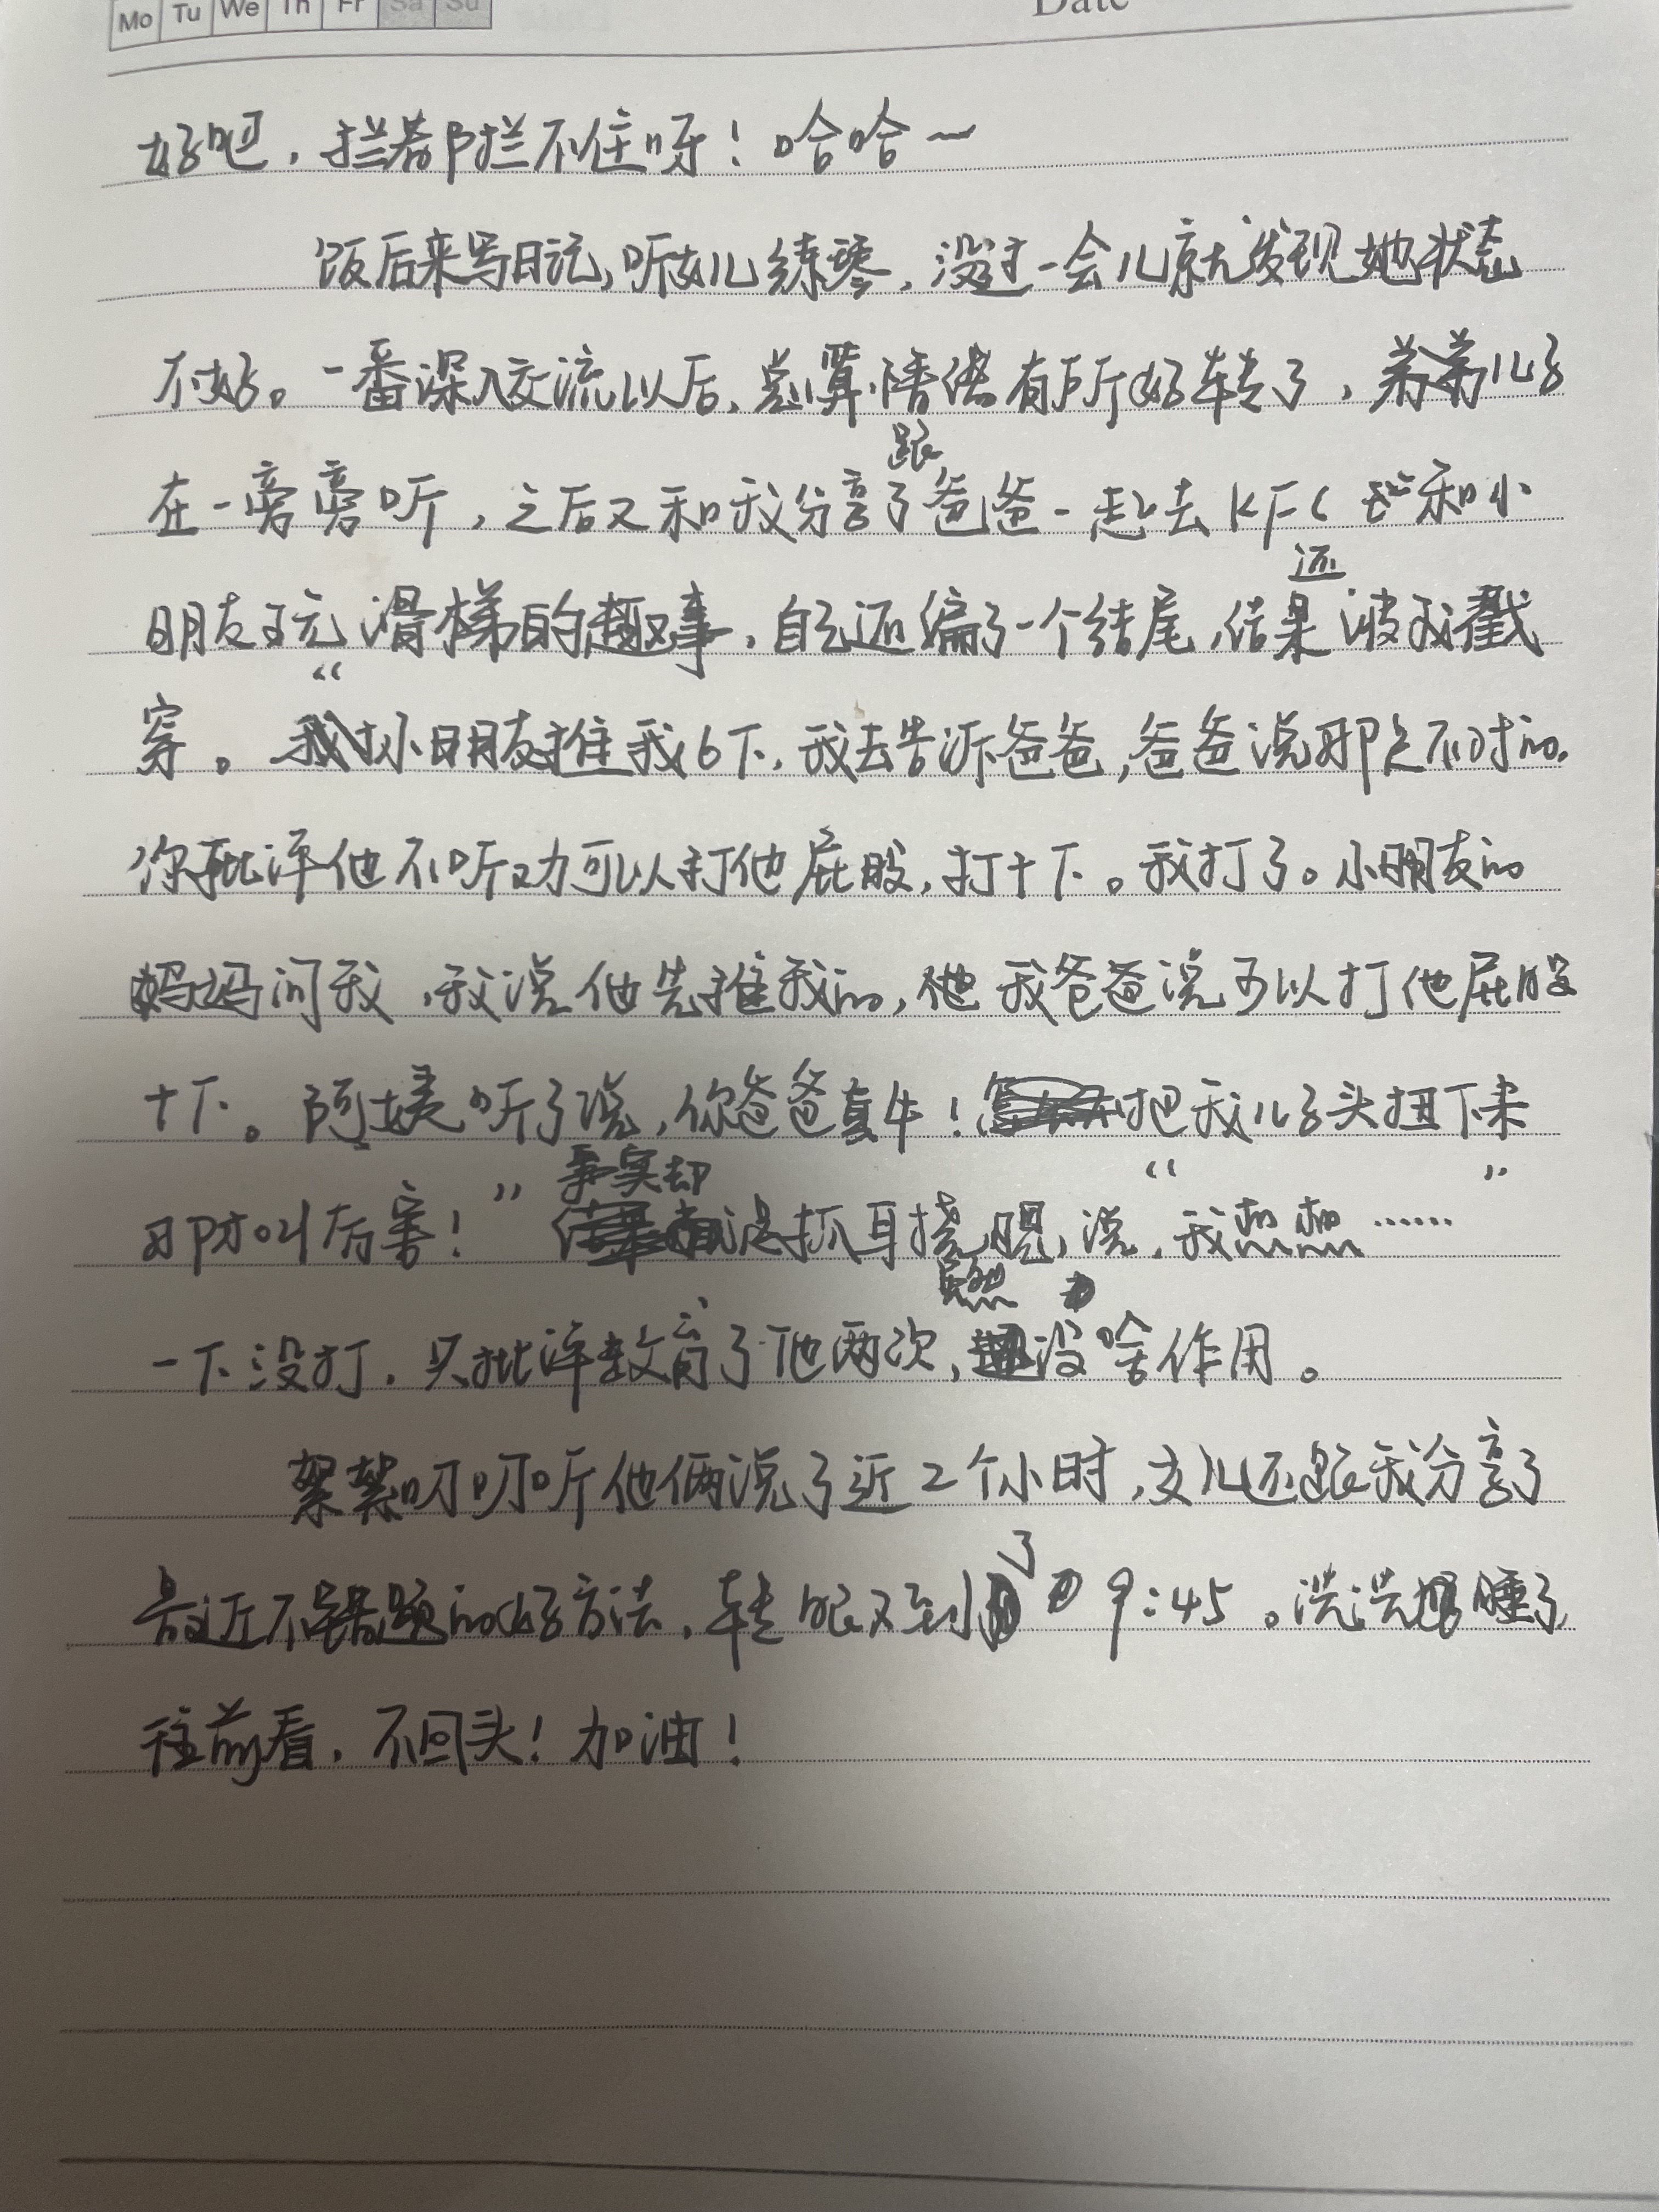 Mo Tu We Th Fr Sa Su Date
好吧，拦都拦不住呀！哈哈~
饭后来写日记，听女儿练琴，没过一会儿就发现她状态
不好。一番深入交流以后，总算情绪有所好转了，弟弟儿子
在一旁旁听，之后又和我分享了跟爸爸一起去KFC和小
朋友玩滑梯的趣事，自己还编了一个结尾，结果还被我戳
穿。“小朋友推我6下，我去告诉爸爸，爸爸说那是不对的，
你批评他不听劝可以打他屁股，打十下。我打了。小朋友的
妈妈问我，我说他先推我的，我爸爸说可以打他屁股
十下。阿姨听了说，你爸爸真牛！把我儿子头扭下来
那才叫厉害！”事实却是抓耳挠腮，说，“我想想……”
一下没打，只批评教育了他两次，居然没啥作用。
絮絮叨叨听他俩说了近2个小时，女儿还跟我分享了
最近不错题的好方法，转眼又到了9:45。洗洗睡了
往前看，不回头！加油！